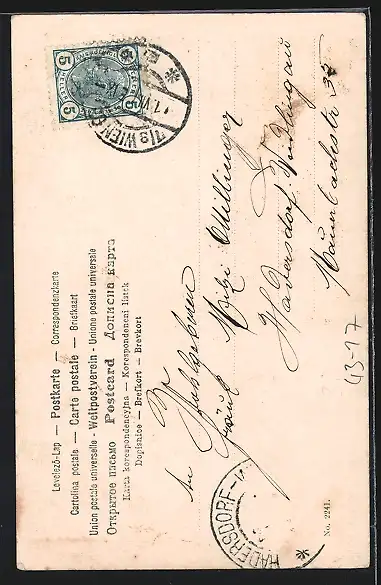 Levelező-Lap — Postkarte — Correspondenzkarte
Cartolina postale — Carte postale — Briefkaart
Union postale universelle - Weltpostverein - Unione postale universale
Открытое письмо Postcard Дописна карта
Karta korespondencyjna — Korespondenční lístek
Dopisnice — Brefkort — Brevkort
5
5
5
5
WIEN
Fräul.
Mizi Millinger
Hadersdorf-Weidlingau
Mauerbachstr 32
HADERSDORF-
No. 2241.
43-17